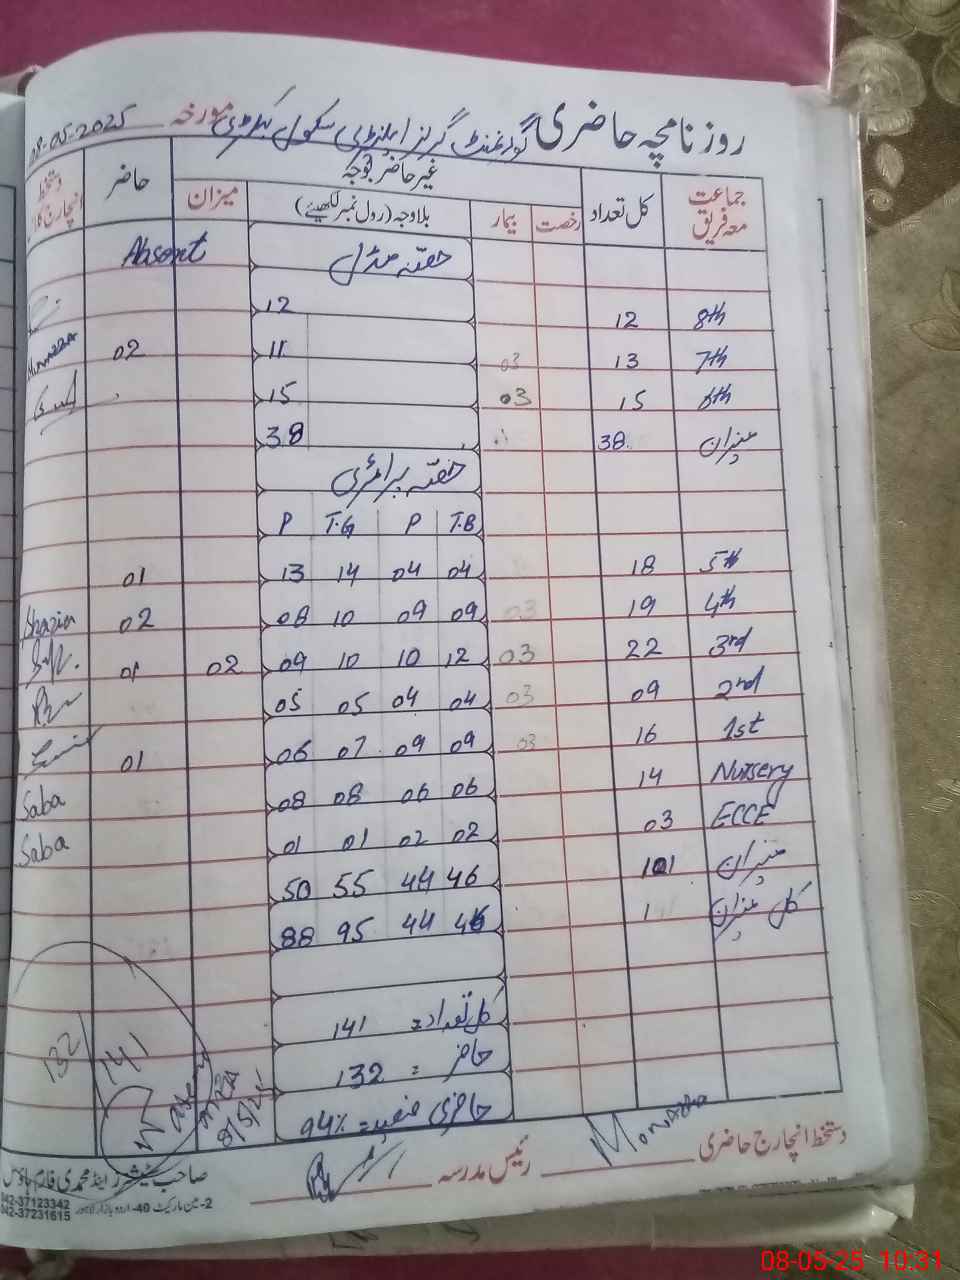 روزنامچہ حاضری گورنمنٹ گرلز ایلیمنٹری سکول مورخہ 08-05-2025
جماعت معہ فریق کل تعداد غیر حاضر بوجہ حاضر دستخط انچارج
رخصت بیمار بلاوجہ (رول نمبر لکھیئے) میزان
حصّہ مڈل Absent
8th 12 12
7th 13 03 11 02 Munazza
6th 15 03 15
میزان 38 38
حصّہ پرائمری
P T.G P T.B
5th 18 13 14 04 04 01
4th 19 03 08 10 09 09 02 Shazia
3rd 22 03 09 10 10 12 02 01
2nd 09 03 05 05 04 04
1st 16 03 06 07 09 09 01
Nursery 14 08 08 06 06 Saba
ECCE 03 01 01 02 02 Saba
میزان 101 50 55 44 46
کل میزان 1 88 95 44 46
کل تعداد = 141
حاضر = 132
حاضری فیصد = 94%
132/141
8/5/25
دستخط انچارج حاضری رئیس مدرسہ
042-37123342
042-37231615
2-مین مارکیٹ 40-اردو بازار لاہور
08-05-25 10:31